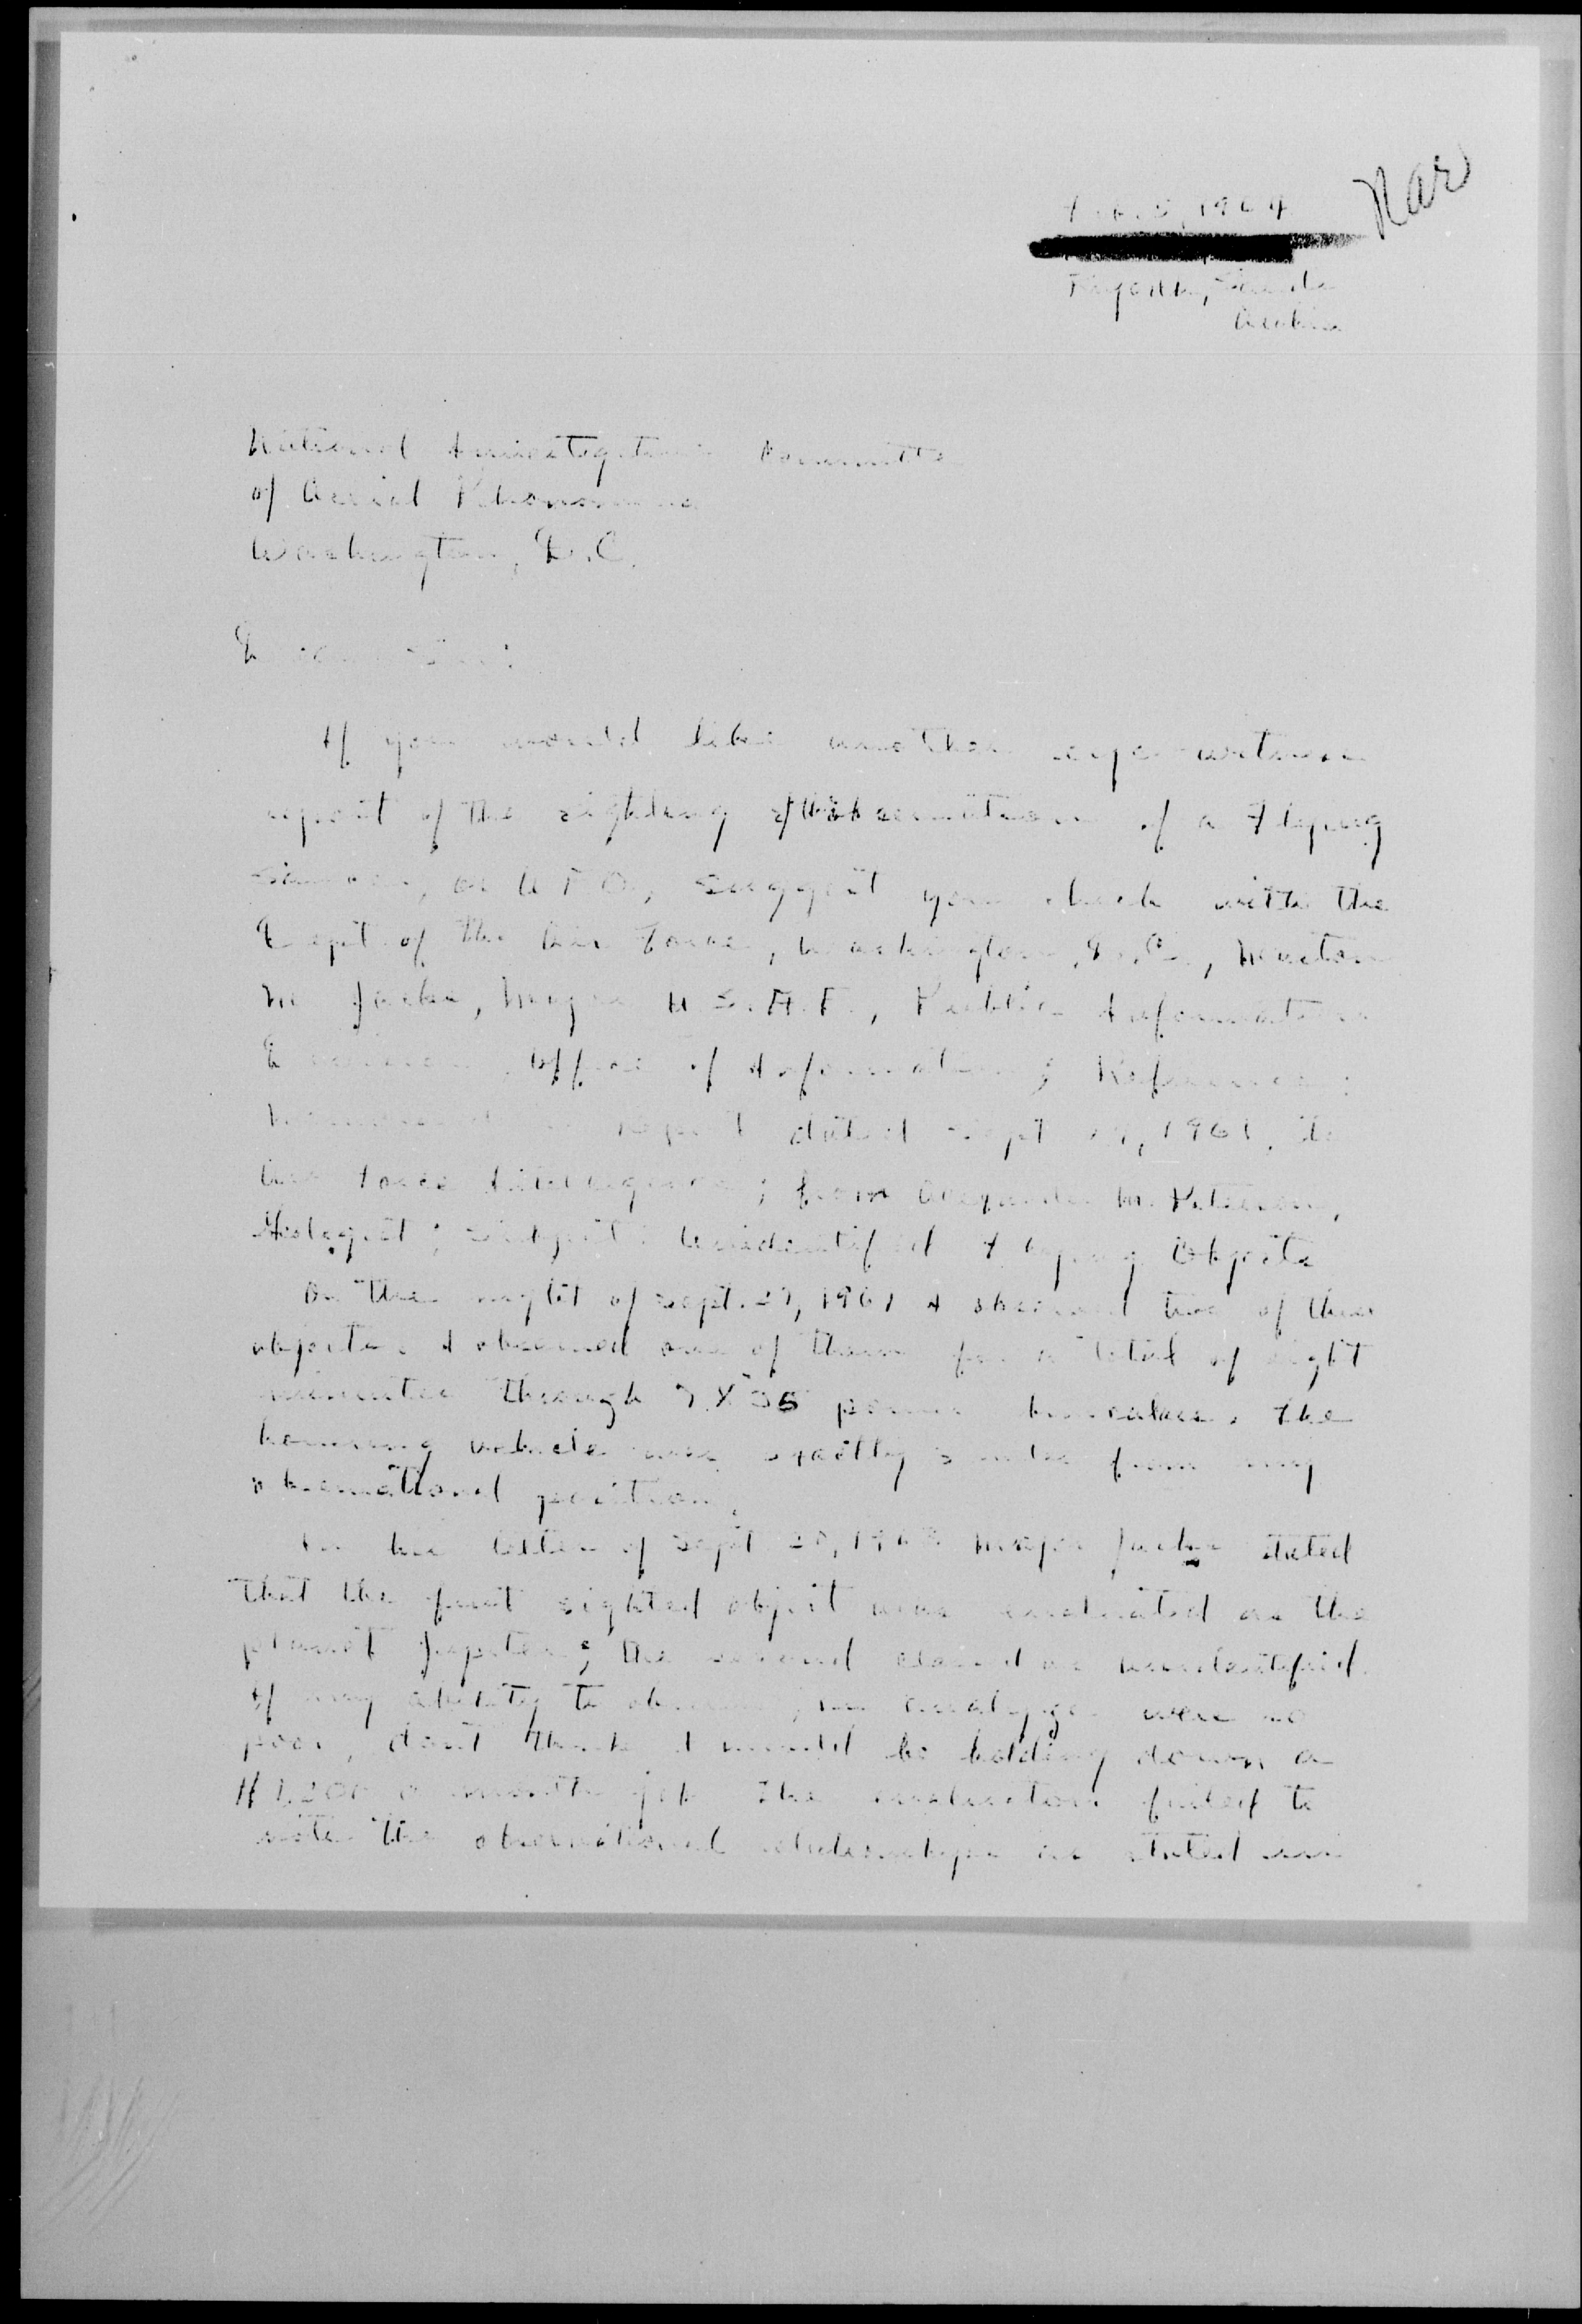 Mar
Feb. 5, 1964
Riyadh, Saudi
Arabia
National Investigations Committee
of Aerial Phenomena
Washington, D.C.
If you would like another eye-witness
report of the sighting of a Flying
Saucer, or U F O, suggest you check with the
Dept. of the Air Force, Washington, D.C.,
M. Jacks, Major U.S.A.F., Public Information
Division, Office of Information; Reference:
report dated Sept , 1961, to
Air Force Intelligence; from Alexander M. Peterson,
Geologist; subject: Unidentified Flying Objects
On the night of Sept. 27, 1961 I observed two of these
objects. I observed one of them for a total of eight
minutes through 7 X 35 power binoculars. The
hovering vehicle was exactly miles from my
observational position.
In his letter of Sept 20, 1963 Major Jacks stated
that the first sighted object was evaluated as the
planet Jupiter; the second classed as unidentified.
If my ability to observe, analyze were so
poor, don't think I would be holding down a
$1,200 a month job. The evaluators failed to
note the observational relationships as stated